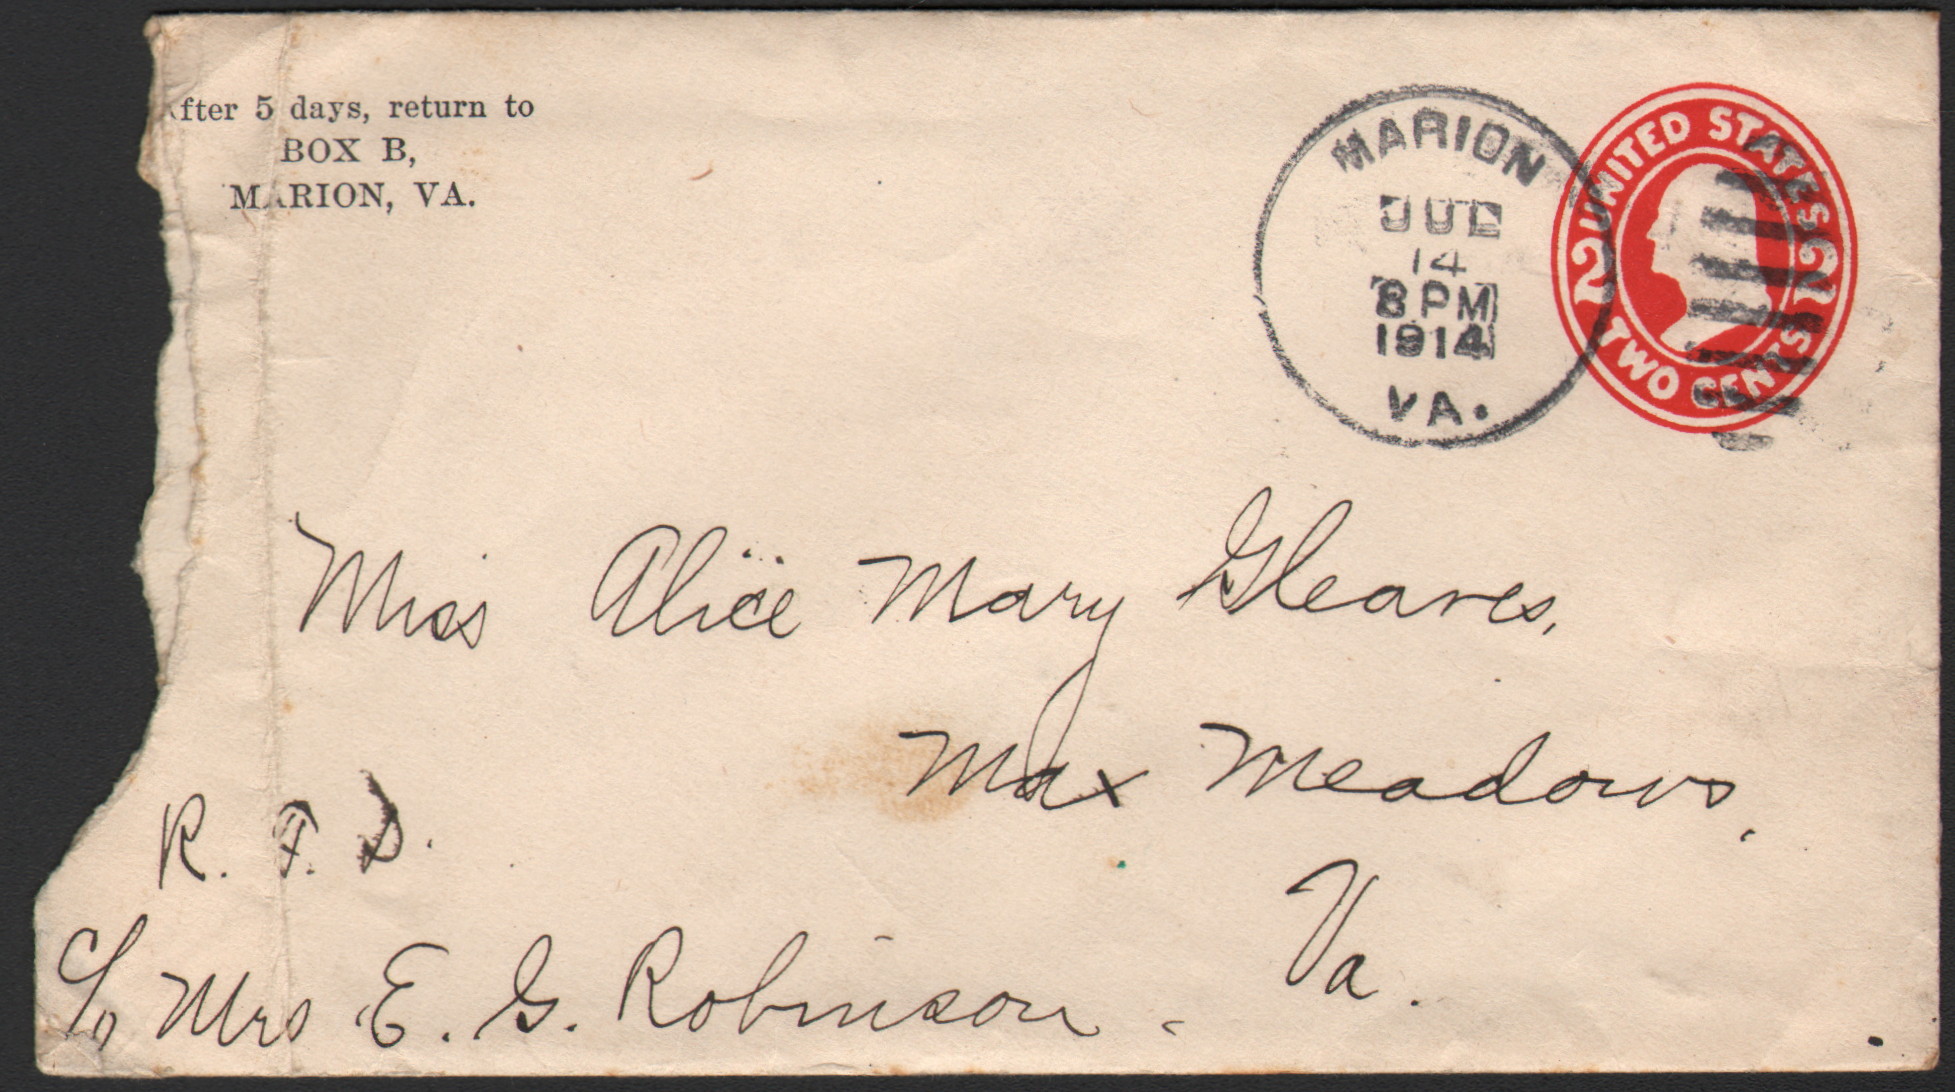 After 5 days, return to
BOX B,
MARION, VA.
MARION
JUL
14
8 PM
1914
VA.
UNITED STATES
2 2
TWO CENTS
Miss Alice Mary Gleaves,
Max Meadows,
Va.
R. F. D.
c/o Mrs E. G. Robinson